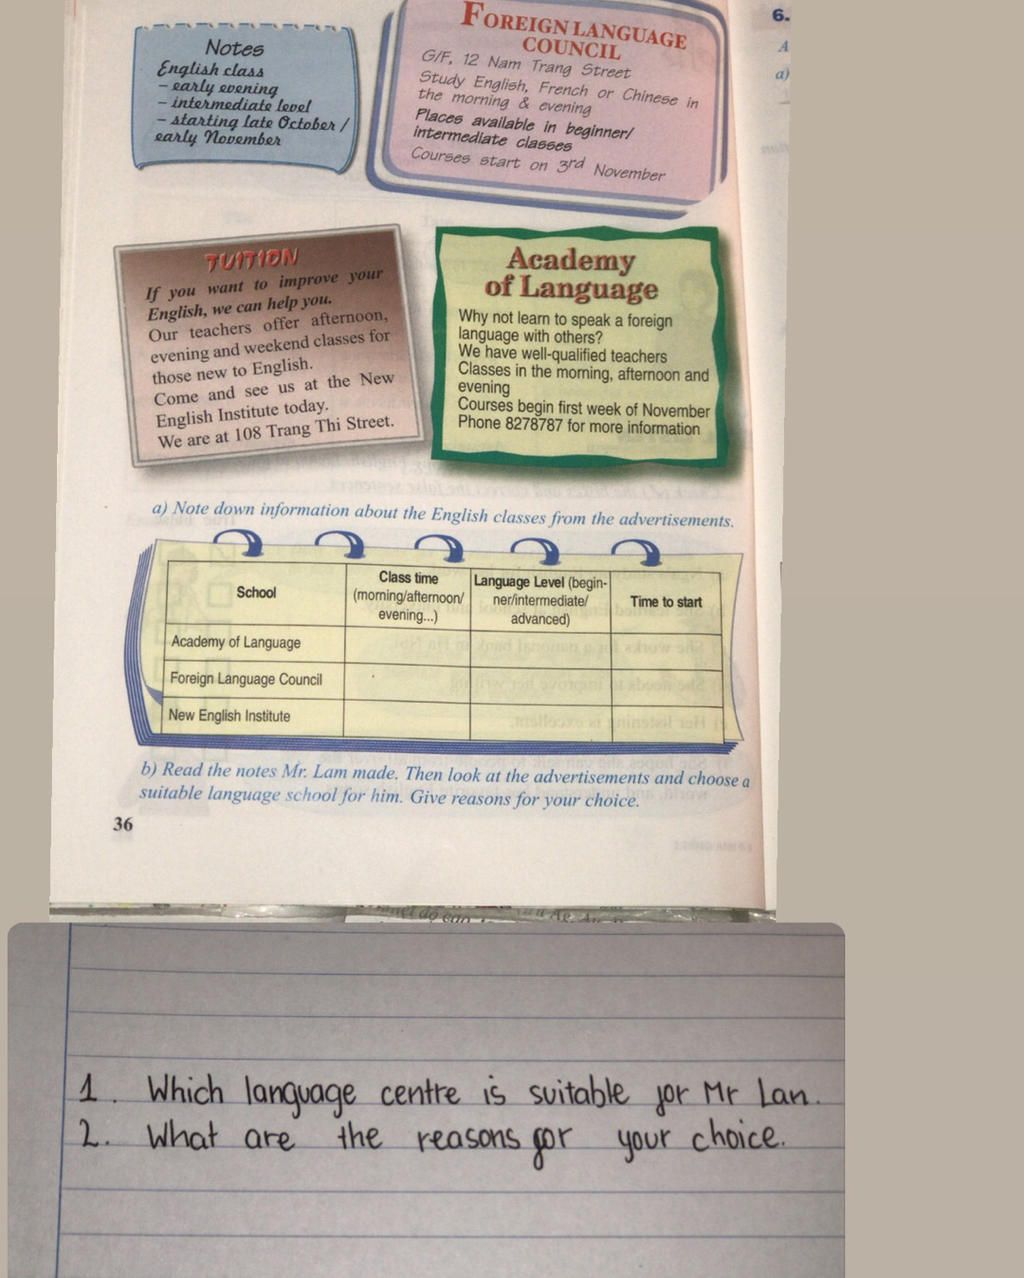 Notes
English class
- early evening
- intermediate level
- starting late October /
early November
FOREIGN LANGUAGE
COUNCIL
G/F, 12 Nam Trang Street
Study English, French or Chinese in
the morning & evening
Places available in beginner/
intermediate classes
Courses start on 3rd November
6.
A
a)
TUITION
If you want to improve your
English, we can help you.
Our teachers offer afternoon,
evening and weekend classes for
those new to English.
Come and see us at the New
English Institute today.
We are at 108 Trang Thi Street.
Academy
of Language
Why not learn to speak a foreign
language with others?
We have well-qualified teachers
Classes in the morning, afternoon and
evening
Courses begin first week of November
Phone 8278787 for more information
a) Note down information about the English classes from the advertisements.
School
Class time
(morning/afternoon/
evening...)
Language Level (begin-
ner/intermediate/
advanced)
Time to start
Academy of Language
Foreign Language Council
New English Institute
b) Read the notes Mr. Lam made. Then look at the advertisements and choose a
suitable language school for him. Give reasons for your choice.
36
1. Which language centre is suitable for Mr Lan.
2. What are the reasons for your choice.